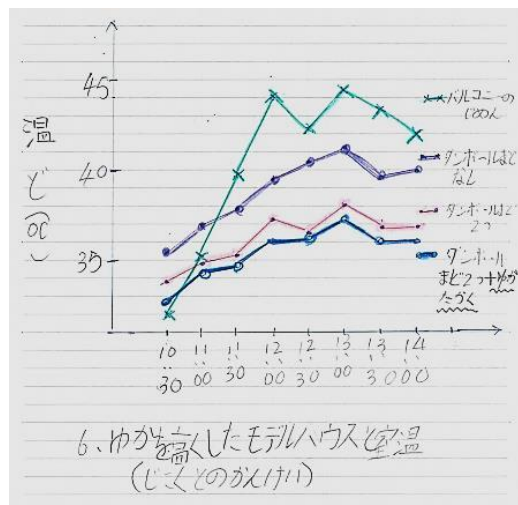 温ど(℃)
45
40
35
バルコニーの
じめん
ダンボールまど
なし
ダンボールまど
2つ
ダンボール
まど2つ+ゆか
たかく
10:30
11:00
11:30
12:00
12:30
13:00
13:30
14:00
6、ゆかを高くしたモデルハウスと室温
(じこくとのかんけい)